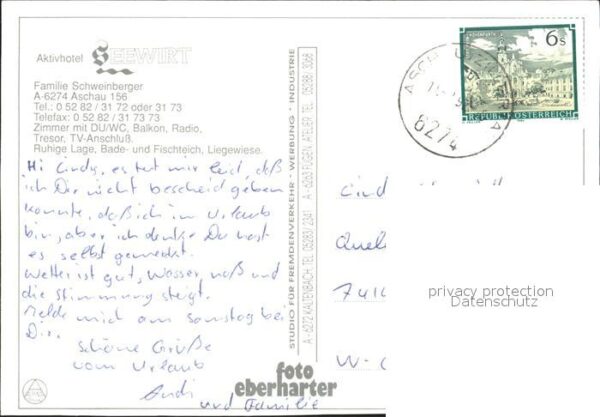 Aktivhotel SEEWIRT
Familie Schweinberger
A-6274 Aschau 156
Tel.: 0 52 82 / 31 72 oder 31 73
Telefax: 0 52 82 / 31 73 73
Zimmer mit DU/WC, Balkon, Radio,
Tresor, TV-Anschluß.
Ruhige Lage, Bade- und Fischteich, Liegewiese.
Hi Cindy, es tut mir leid, daß
ich Dir nicht bescheid geben
konnte, daß ich in Urlaub
bin, aber ich denke Du hast
es selbst gemerkt.
Wetter ist gut, Wasser naß und
die Stimmung steigt.
Melde mich am samstag bei
Dir.
schöne Grüße
vom Urlaub
Andi
und Familie
STUDIO FÜR FREMDENVERKEHR - WERBUNG - INDUSTRIE
A - 6272 KALTENBACH TEL. 05283/2341 A - 6263 FÜGEN ATELIER TEL. 05288/3068
foto
eberharter
6s
REPUBLIK ÖSTERREICH
ASCHAU
6274
Cind
Quel
741
W-
privacy protection
Datenschutz